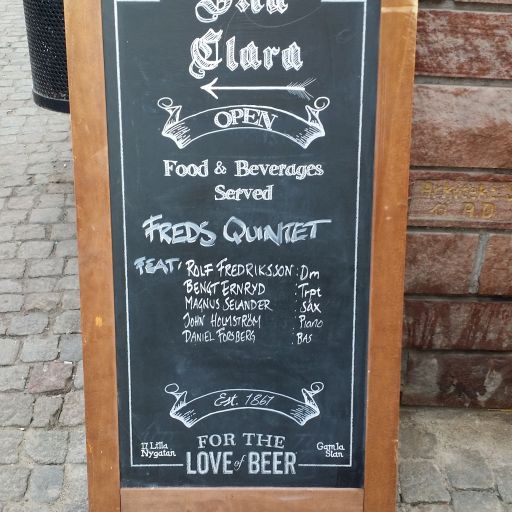 Clara
OPEN
Food & Beverages
Served
FREDS QUINTET
FEAT: ROLF FREDRIKSSON : Dm
BENGT ERNRYD : Trpt
MAGNUS SELANDER : Sax
JOHN HOLMSTRÖM : Piano
DANIEL FORSBERG : BAS
Est. 1867
17 Lilla
Nygatan
FOR THE
LOVE of BEER
Gamla
Stan